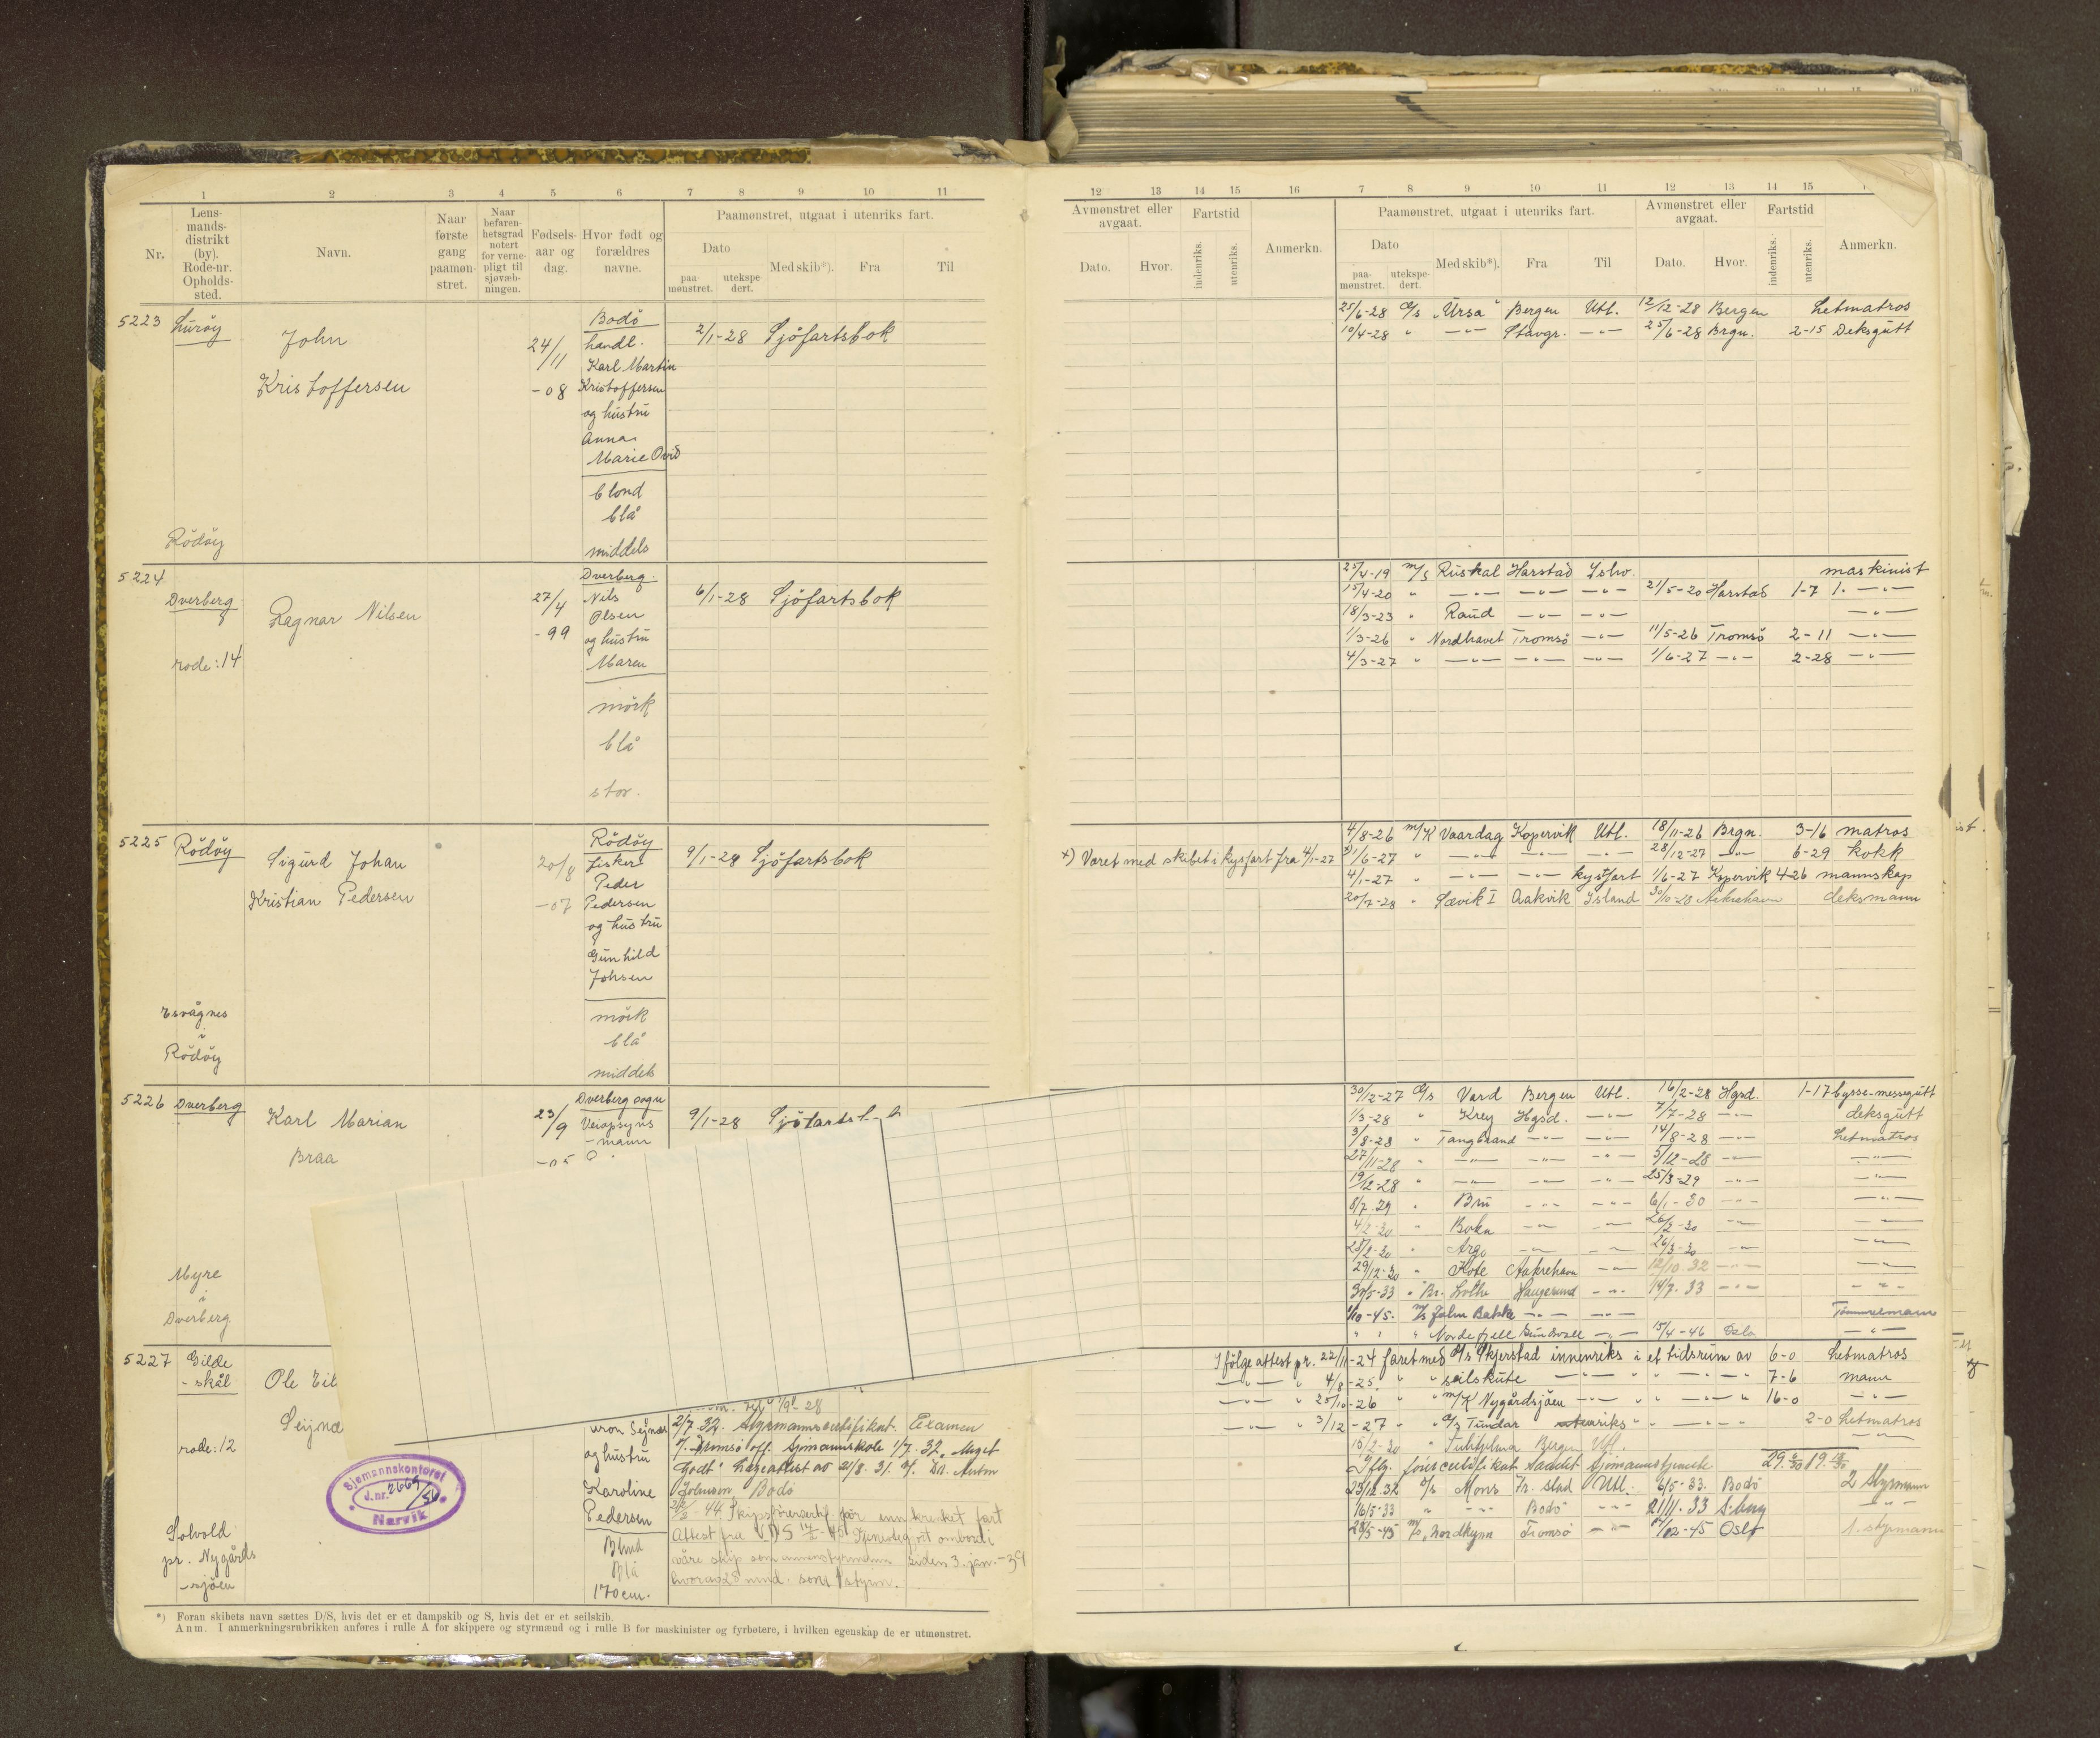 1 2 3 4 5 6 7 8 9 10 11
Nr.
Lens-
mands-
distrikt
(by).
Rode-nr.
Opholds-
sted.
Navn.
Naar
første
gang
paamøn-
stret.
Naar
befaren-
hetsgrad
notert
for verne-
pligt til
sjøvæb-
ningen.
Fødsels-
aar og
dag.
Hvor født og
forældres
navne.
Paamønstret, utgaat i utenriks fart.
Dato
paa-
mønstret.
utekspe-
dert.
Med skib*).
Fra
Til
12 13 14 15 16 7 8 9 10 11 12 13 14 15
Avmønstret eller
avgaat.
Dato. Hvor.
Fartstid
indenriks.
utenriks.
Anmerkn.
Paamønstret, utgaat i utenriks fart.
Dato
paa-
mønstret.
utekspe-
dert.
Med skib*).
Fra
Til
Avmønstret eller
avgaat.
Dato. Hvor.
Fartstid
indenriks.
utenriks.
Anmerkn.
5223 Luröy
John
Kristoffersen
24/11
-08
Bodö
handl.
Karl Martin
Kristoffersen
og hustru
Anna
Marie
blond
blå
middels
Rödöy
2/1-28 Sjöfartsbok
25/6-28 D/s "Ursa" Bergen Utl. 12/12-28 Bergen Letmatros
10/4-28 " -"- Stavgr. -"- 25/6-28 Brgn. 2-15 Deksgutt
5224
Dverberg
rode: 14
Ragnar Nilsen
27/4
-99
Dverberg.
Nils
Olsen
og hustru
Maren
mörk
blå
stor.
6/1-28 Sjöfartsbok
25/4-19 m/s Ruskal Harstad Ishv. maskinist
15/4-20 " -"- -"- -"- 21/5-20 Harstad 1-7 1. -"-
18/3-23 " Raud -"- -"- -"-
1/3-26 " Nordhavet Tromsö -"- 11/5-26 Tromsö 2-11 -"-
4/3-27 " -"- -"- -"- 1/6-27 -"- 2-28 -"-
5225 Rödöy
Sigurd Johan
Kristian Pedersen
20/8
-07
Rödöy
fisker
Peder
Pedersen
og hustru
Gunhild
Johsen
mörk
blå
middels
Esvågnes
i
Rödöy
9/1-28 Sjöfartsbok
4/8-26 m/K Vaardag Kopervik Utl. 18/11-26 Brgn. 3-16 matros
x) Været med skibet i kysfart fra 4/1-27 x) 1/6-27 " -"- -"- -"- 28/12-27 -"- 6-29 kokk
4/1-27 " -"- -"- kystfart 1/6-27 Kopervik 4-26 mannskap
20/7-28 " Sævik I Aakvik Island 30/10-28 deksmann
5226 Dverberg
Karl Marian
Braa
23/9
-05
Dverberg sogn
Veiopsyns
-mann
Myre
i
Dverberg
9/1-28
30/12-27 D/s Vard Bergen Utl. 16/2-28 Hgsd. 1-17 bysse-messegutt
1/3-28 " Krey Hgsd. -"- 7/7-28 -"- deksgutt
3/8-28 " Tangbrand -"- -"- 14/8-28 -"- Letmatros
27/11-28 " -"- -"- -"- 5/12-28 -"- -"-
19/12-28 " -"- -"- -"- 25/3-29 -"- -"-
8/7-29 " Bru -"- -"- 6/1-30 -"- -"-
4/2-30 " Bokn -"- -"- 26/2-30 -"- -"-
28/2-30 " Argo -"- -"- 26/3-30 -"- -"-
29/12-30 " Kote Aakrehavn -"- 12/10-32 -"- -"-
30/5-33 " Br. Haugesund -"- 14/7-33 -"- -"-
1/10-45. m/s John Bakke -"- -"- Tömmelmann
" " " Nordefjell Sundsvall -"- 15/4-46 Oslo -"-
5227 Gilde
-skål
rode: 12
Ole
Solvold
pr. Nygårds
-sjöen
og hustru
Karoline
Pedersen
Blond
Blå
170 cm.
Sjømannskontoret
J.nr. 2669/56
Narvik
2/7. 32. Styrmannscertifikat. Examen
v. Tromsö off. Sjömannskole 1/7. 32. Meget
Godt. Legeattest av 21/8. 31. v. Dr. Anton
Johnson, Bodö
Attest fra V.D.S
våre skip som annenstyrmann siden 3. jan.-39
hvorav 28 mnd. som 1 styrm.
Ifölge attest pr. 22/11-24 faret med D/s Skjerstad innenriks i et tidsrum av 6-0 Letmatros
-"- " 4/8-25. " " seilskute -"- " " -"- " 7-6 mann
-"- " 25/10-26 " " m/K Nygårdsjöen -"- " " -"- " 16-0 -"-
-"- " 3/12-27 " " D/s Tundar utenriks " " -"- " 2-0 Letmatros
15/2-30 " Sulitjelma Bergen Utl. -"-
23/12.32 D/s Mons Fr. stad Utl. 6/5-33. Bodö 2 styrmann
16/5-33 " -"- Bodö -"- 21/11-33 S.borg -"-
28/5-45 m/s Nordkynn Tromsö -"- 14/12-45 Oslo 1. styrmann
*) Foran skibets navn sættes D/S, hvis det er et dampskib og S, hvis det er et seilskib.
Anm. I anmerkningsrubrikken anføres i rulle A for skippere og styrmænd og i rulle B for maskinister og fyrbøtere, i hvilken egenskap de er utmønstret.